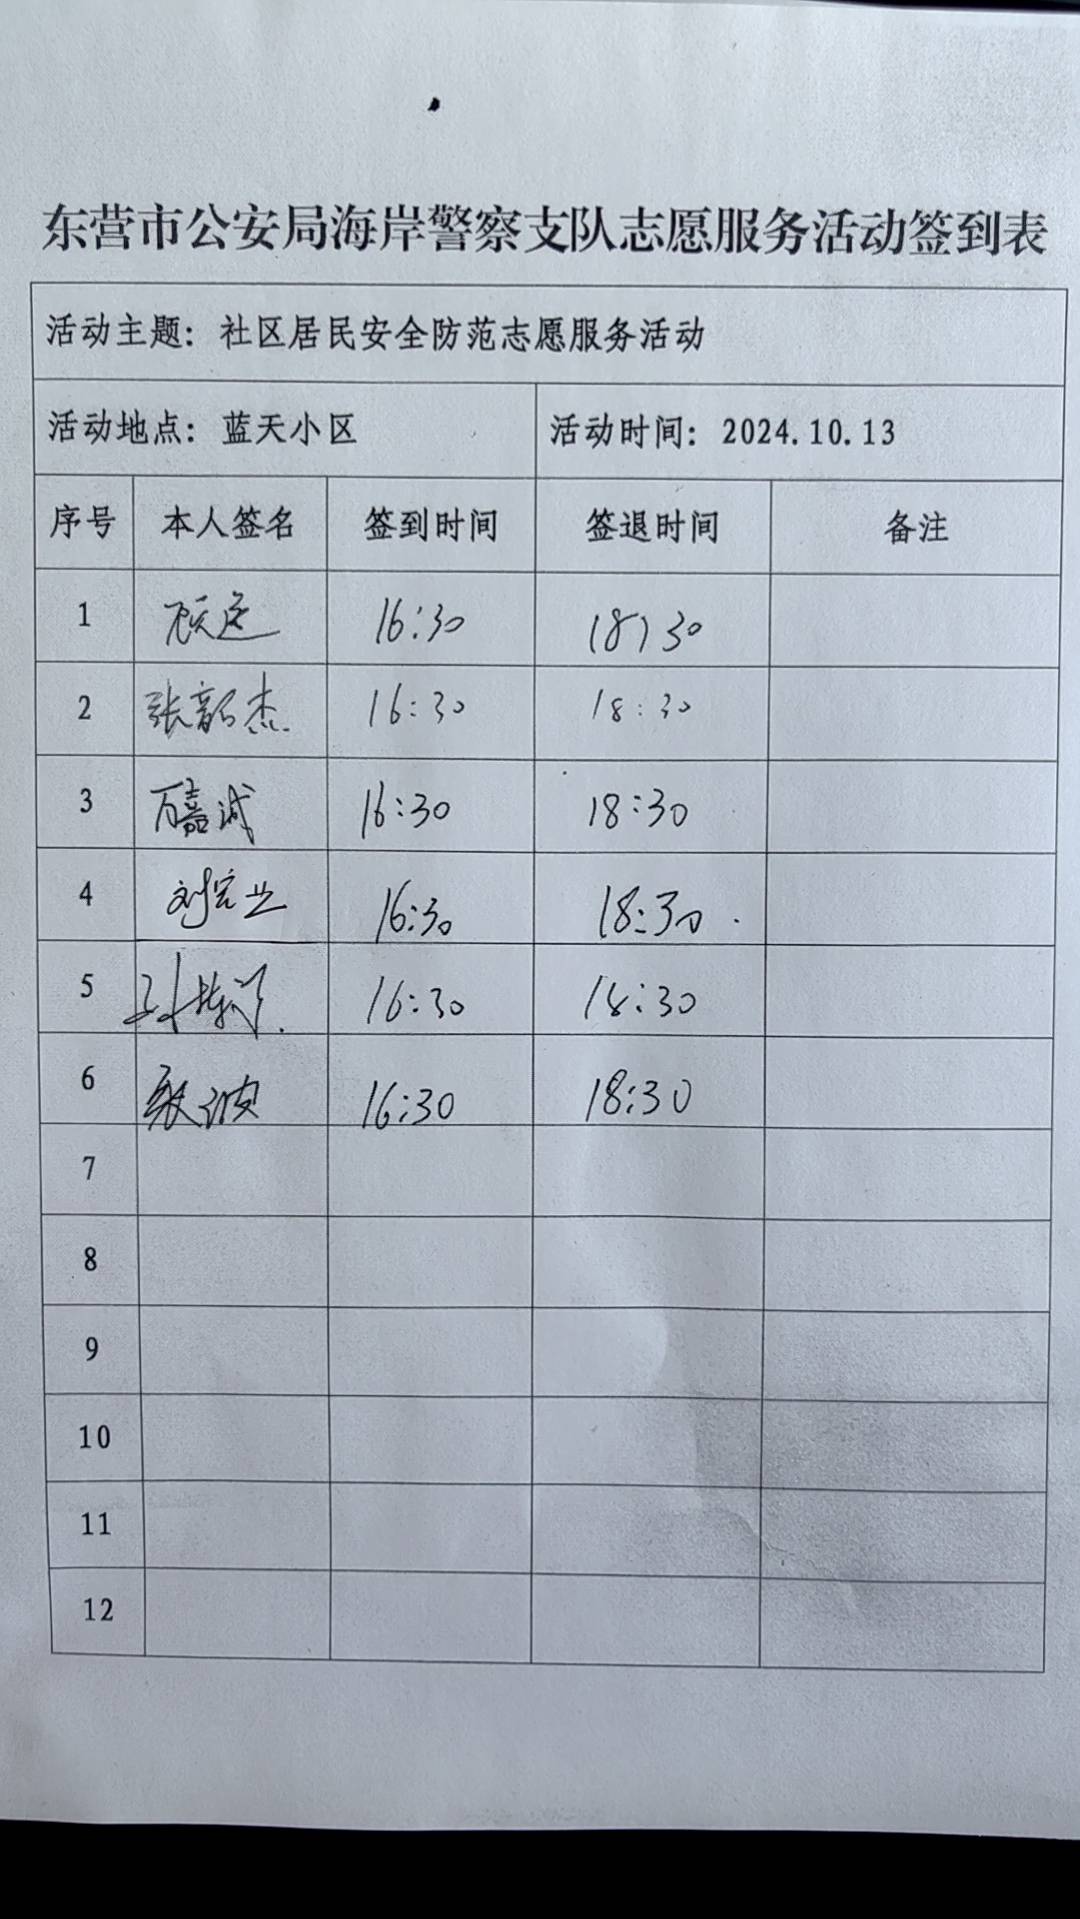 东营市公安局海岸警察支队志愿服务活动签到表
活动主题：社区居民安全防范志愿服务活动
活动地点：蓝天小区 活动时间：2024.10.13
序号 本人签名 签到时间 签退时间 备注
1 16:30 18:30
2 张韶杰 16:30 18:30
3 万嘉诚 16:30 18:30
4 刘宏业 16:30 18:30
5 16:30 18:30
6 16:30 18:30
7
8
9
10
11
12